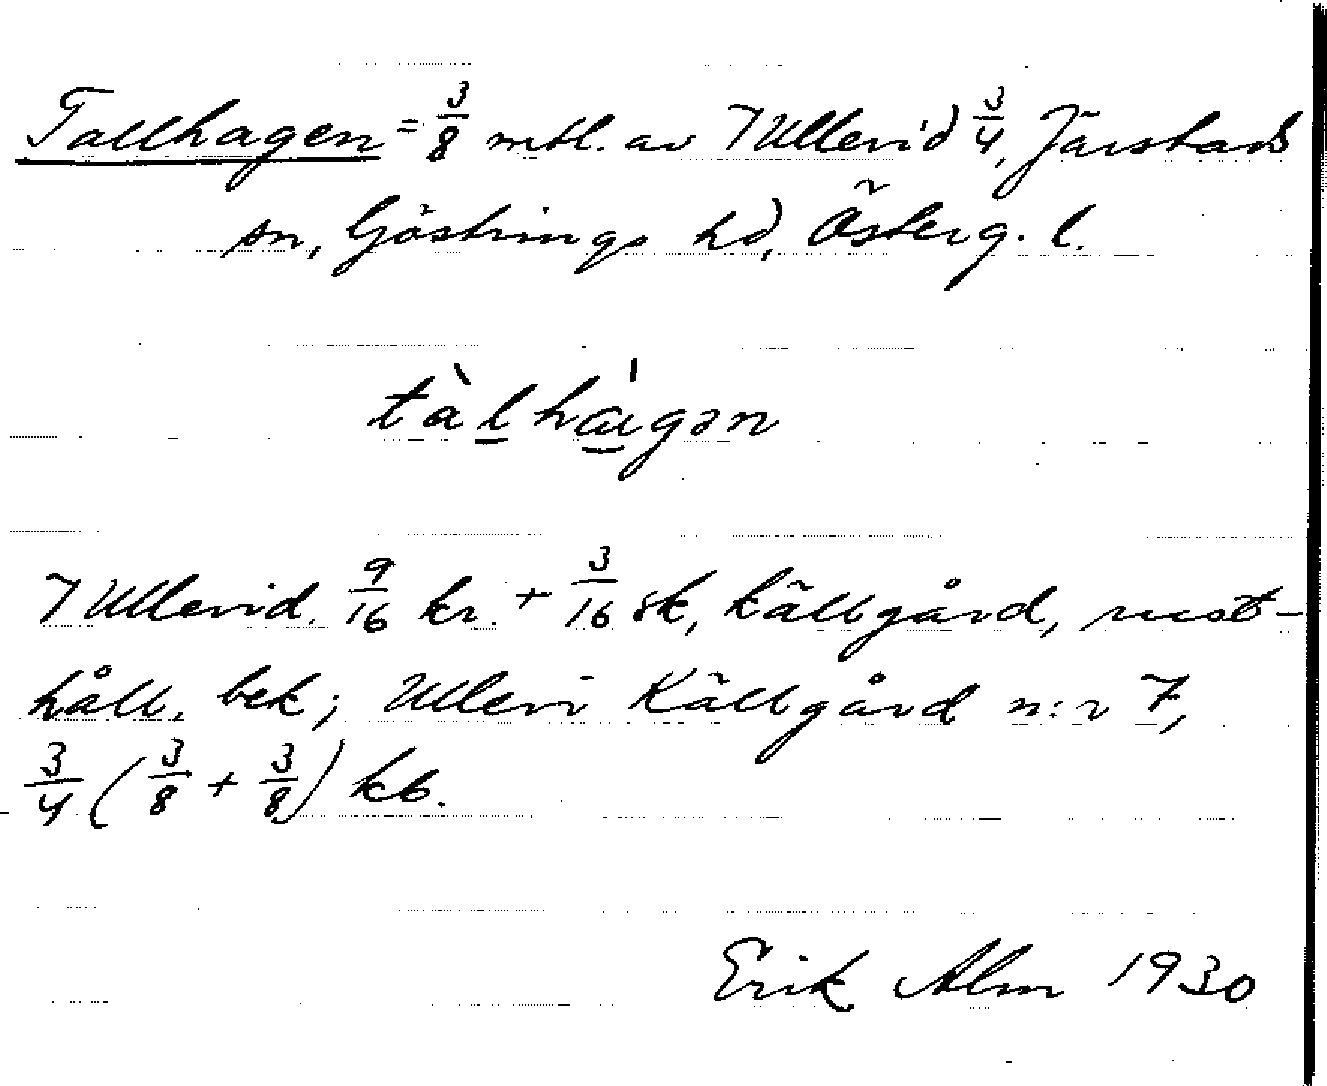 Tallhagen = 3/8 mtl. av 7 Ullevid 3/4, Järstads
sn, Göstrings hd, Österg. l.
tàlhágən
7 Ullevid. 9/16 kr. + 3/16 sk, Källgård, rust-
håll. bek; Ullevi Källgård n:r 7,
3/4 (3/8 + 3/8) kb.
Erik Alm 1930